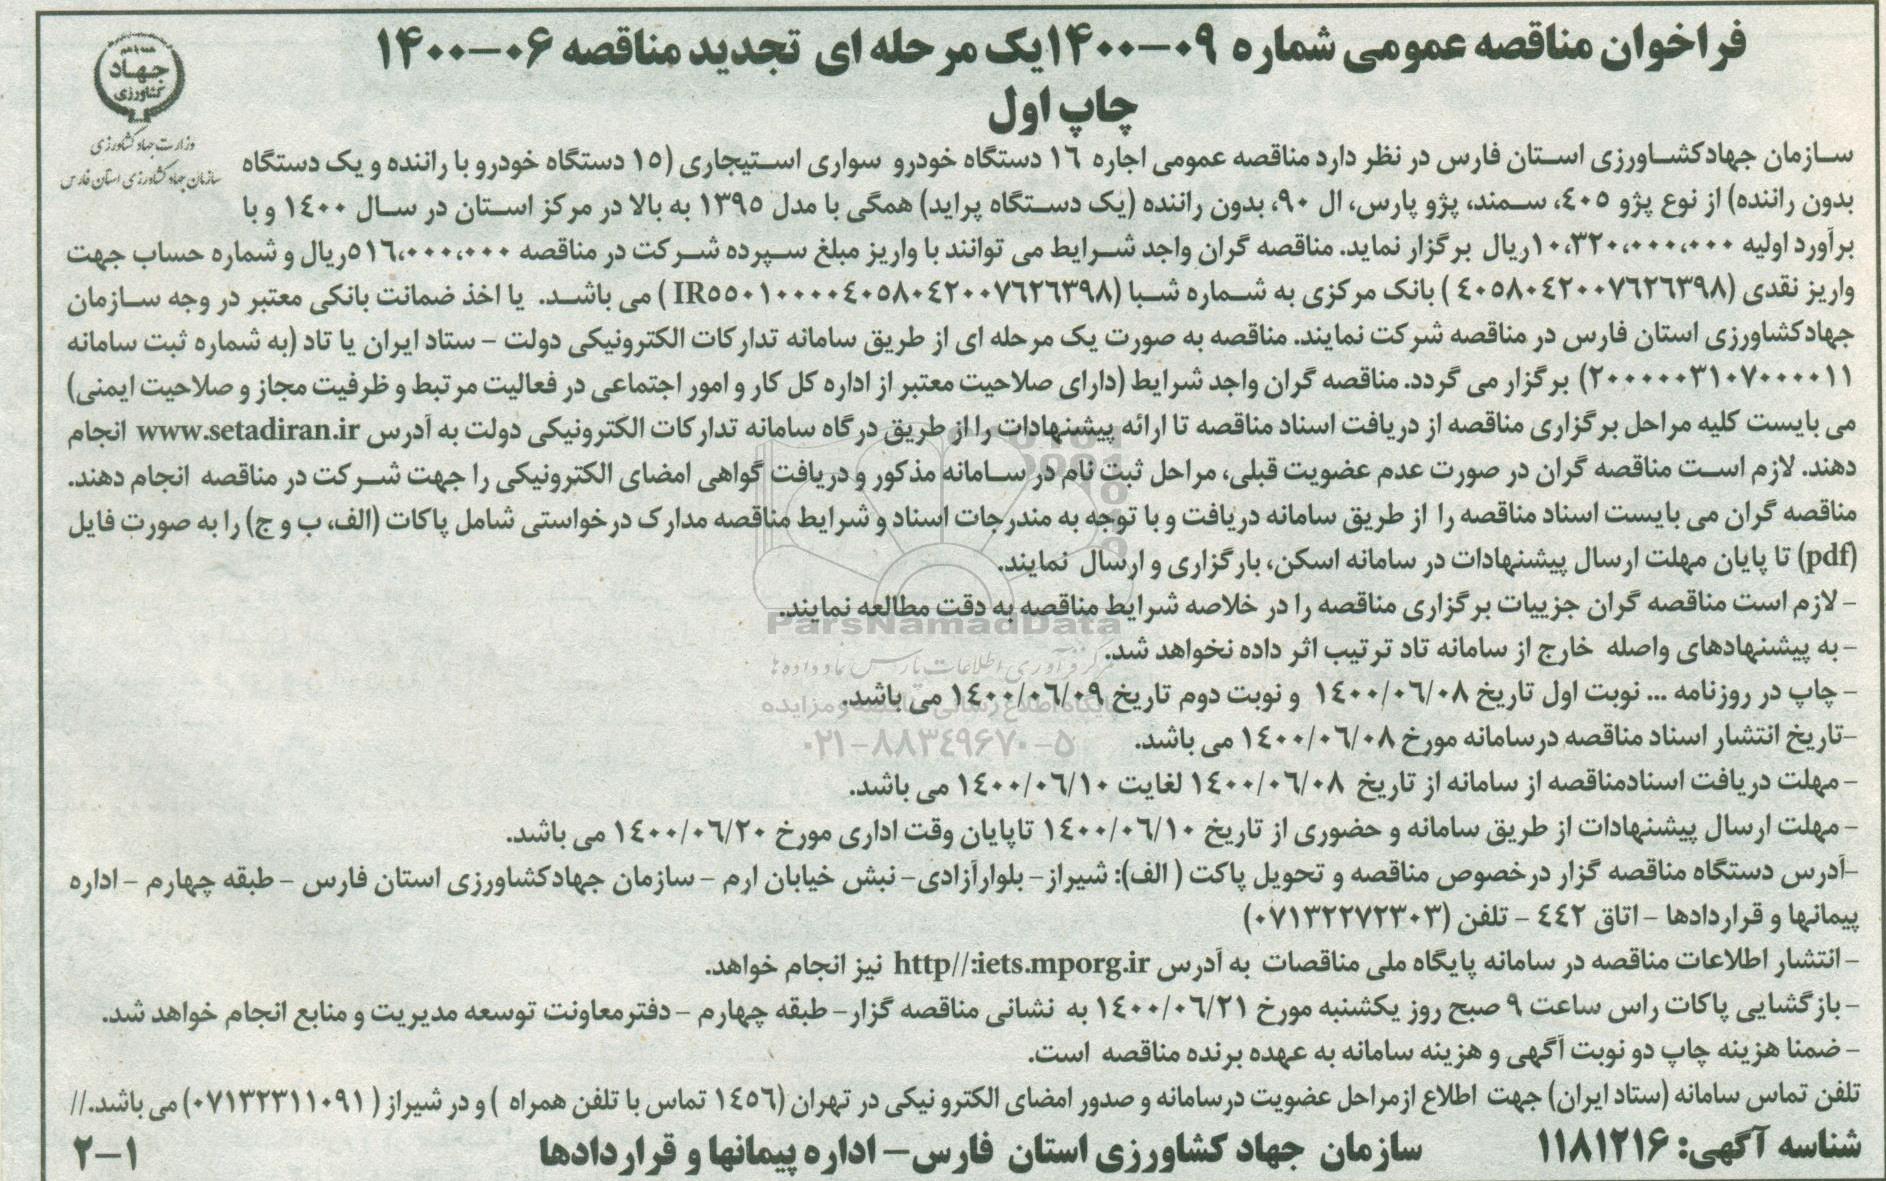 فراخوان مناقصه عمومی شماره ۰۹-۱۴۰۰یک مرحله ای تجدید مناقصه ۰۶-۱۴۰۰
چاپ اول
جهاد
کشاورزی
وزارت جهاد کشاورزی
سازمان جهاد کشاورزی استان فارس
سازمان جهادکشاورزی استان فارس در نظر دارد مناقصه عمومی اجاره ۱۶ دستگاه خودرو سواری استیجاری (۱۵ دستگاه خودرو با راننده و یک دستگاه
بدون راننده) از نوع پژو ۴۰۵، سمند، پژو پارس، ال ۹۰، بدون راننده (یک دستگاه پراید) همگی با مدل ۱۳۹۵ به بالا در مرکز استان در سال ۱۴۰۰ و با
برآورد اولیه ۱۰،۳۲۰،۰۰۰،۰۰۰ریال برگزار نماید. مناقصه گران واجد شرایط می توانند با واریز مبلغ سپرده شرکت در مناقصه ۵۱۶،۰۰۰،۰۰۰ریال و شماره حساب جهت
واریز نقدی (۴۰۵۸۰۴۲۰۰۷۶۲۶۳۹۸ ) بانک مرکزی به شماره شبا (IR۵۵۰۱۰۰۰۰۴۰۵۸۰۴۲۰۰۷۶۲۶۳۹۸ ) می باشد. یا اخذ ضمانت بانکی معتبر در وجه سازمان
جهادکشاورزی استان فارس در مناقصه شرکت نمایند. مناقصه به صورت یک مرحله ای از طریق سامانه تدارکات الکترونیکی دولت - ستاد ایران یا تاد (به شماره ثبت سامانه
۲۰۰۰۰۰۳۱۰۷۰۰۰۰۱۱) برگزار می گردد. مناقصه گران واجد شرایط (دارای صلاحیت معتبر از اداره کل کار و امور اجتماعی در فعالیت مرتبط و ظرفیت مجاز و صلاحیت ایمنی)
می بایست کلیه مراحل برگزاری مناقصه از دریافت اسناد مناقصه تا ارائه پیشنهادات را از طریق درگاه سامانه تدارکات الکترونیکی دولت به آدرس www.setadiran.ir انجام
دهند. لازم است مناقصه گران در صورت عدم عضویت قبلی، مراحل ثبت نام در سامانه مذکور و دریافت گواهی امضای الکترونیکی را جهت شرکت در مناقصه انجام دهند.
مناقصه گران می بایست اسناد مناقصه را از طریق سامانه دریافت و با توجه به مندرجات اسناد و شرایط مناقصه مدارک درخواستی شامل پاکات (الف، ب و ج) را به صورت فایل
(pdf) تا پایان مهلت ارسال پیشنهادات در سامانه اسکن، بارگزاری و ارسال نمایند.
- لازم است مناقصه گران جزییات برگزاری مناقصه را در خلاصه شرایط مناقصه به دقت مطالعه نمایند.
ParsNamadData
- به پیشنهادهای واصله خارج از سامانه تاد ترتیب اثر داده نخواهد شد.
مرکز فرآوری اطلاعات پارس نماد داده ها
- چاپ در روزنامه ... نوبت اول تاریخ ۱۴۰۰/۰۶/۰۸ و نوبت دوم تاریخ ۱۴۰۰/۰۶/۰۹ می باشد.
پایگاه اطلاع رسانی مناقصه و مزایده
-تاریخ انتشار اسناد مناقصه درسامانه مورخ ۱۴۰۰/۰۶/۰۸ می باشد.
۰۲۱-۸۸۳۴۹۶۷۰-۵
- مهلت دریافت اسنادمناقصه از سامانه از تاریخ ۱۴۰۰/۰۶/۰۸ لغایت ۱۴۰۰/۰۶/۱۰ می باشد.
- مهلت ارسال پیشنهادات از طریق سامانه و حضوری از تاریخ ۱۴۰۰/۰۶/۱۰ تاپایان وقت اداری مورخ ۱۴۰۰/۰۶/۲۰ می باشد.
-آدرس دستگاه مناقصه گزار درخصوص مناقصه و تحویل پاکت ( الف): شیراز- بلوارآزادی- نبش خیابان ارم - سازمان جهادکشاورزی استان فارس - طبقه چهارم - اداره
پیمانها و قراردادها - اتاق ۴۴۲ - تلفن (۰۷۱۳۲۲۷۲۳۰۳)
- انتشار اطلاعات مناقصه در سامانه پایگاه ملی مناقصات به آدرس http//:iets.mporg.ir نیز انجام خواهد.
- بازگشایی پاکات راس ساعت ۹ صبح روز یکشنبه مورخ ۱۴۰۰/۰۶/۲۱ به نشانی مناقصه گزار- طبقه چهارم - دفترمعاونت توسعه مدیریت و منابع انجام خواهد شد.
- ضمنا هزینه چاپ دو نوبت آگهی و هزینه سامانه به عهده برنده مناقصه است.
تلفن تماس سامانه (ستاد ایران) جهت اطلاع ازمراحل عضویت درسامانه و صدور امضای الکترونیکی در تهران (۱۴۵۶ تماس با تلفن همراه ) و در شیراز ( ۰۷۱۳۲۳۱۱۰۹۱) می باشد.//
شناسه آگهی: ۱۱۸۱۲۱۶ سازمان جهاد کشاورزی استان فارس- اداره پیمانها و قراردادها ۱-۲